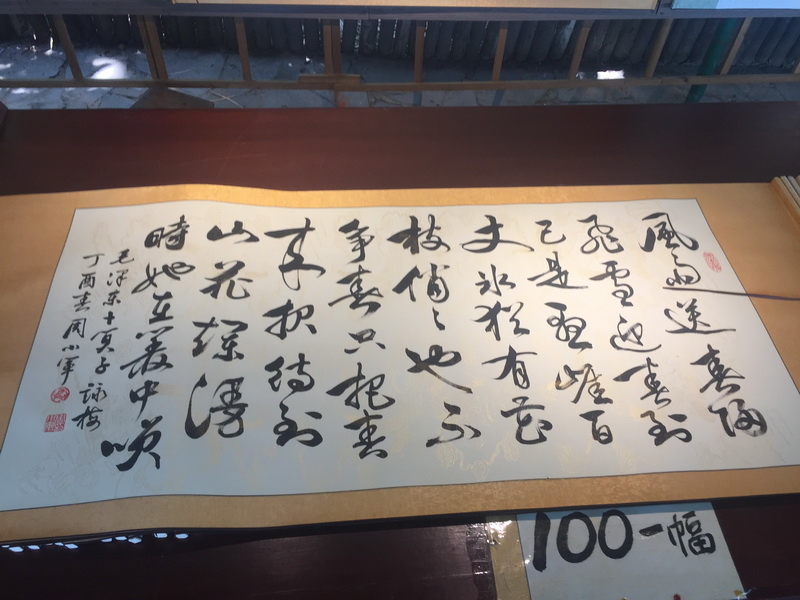 風雨送春歸
飛雪迎春到
已是懸崖百
丈冰猶有花
枝俏〻也不
爭春只把春
來報待到
山花爛漫
時她在叢中咲
毛澤東卜算子詠梅
丁酉春周小軍
100一幅